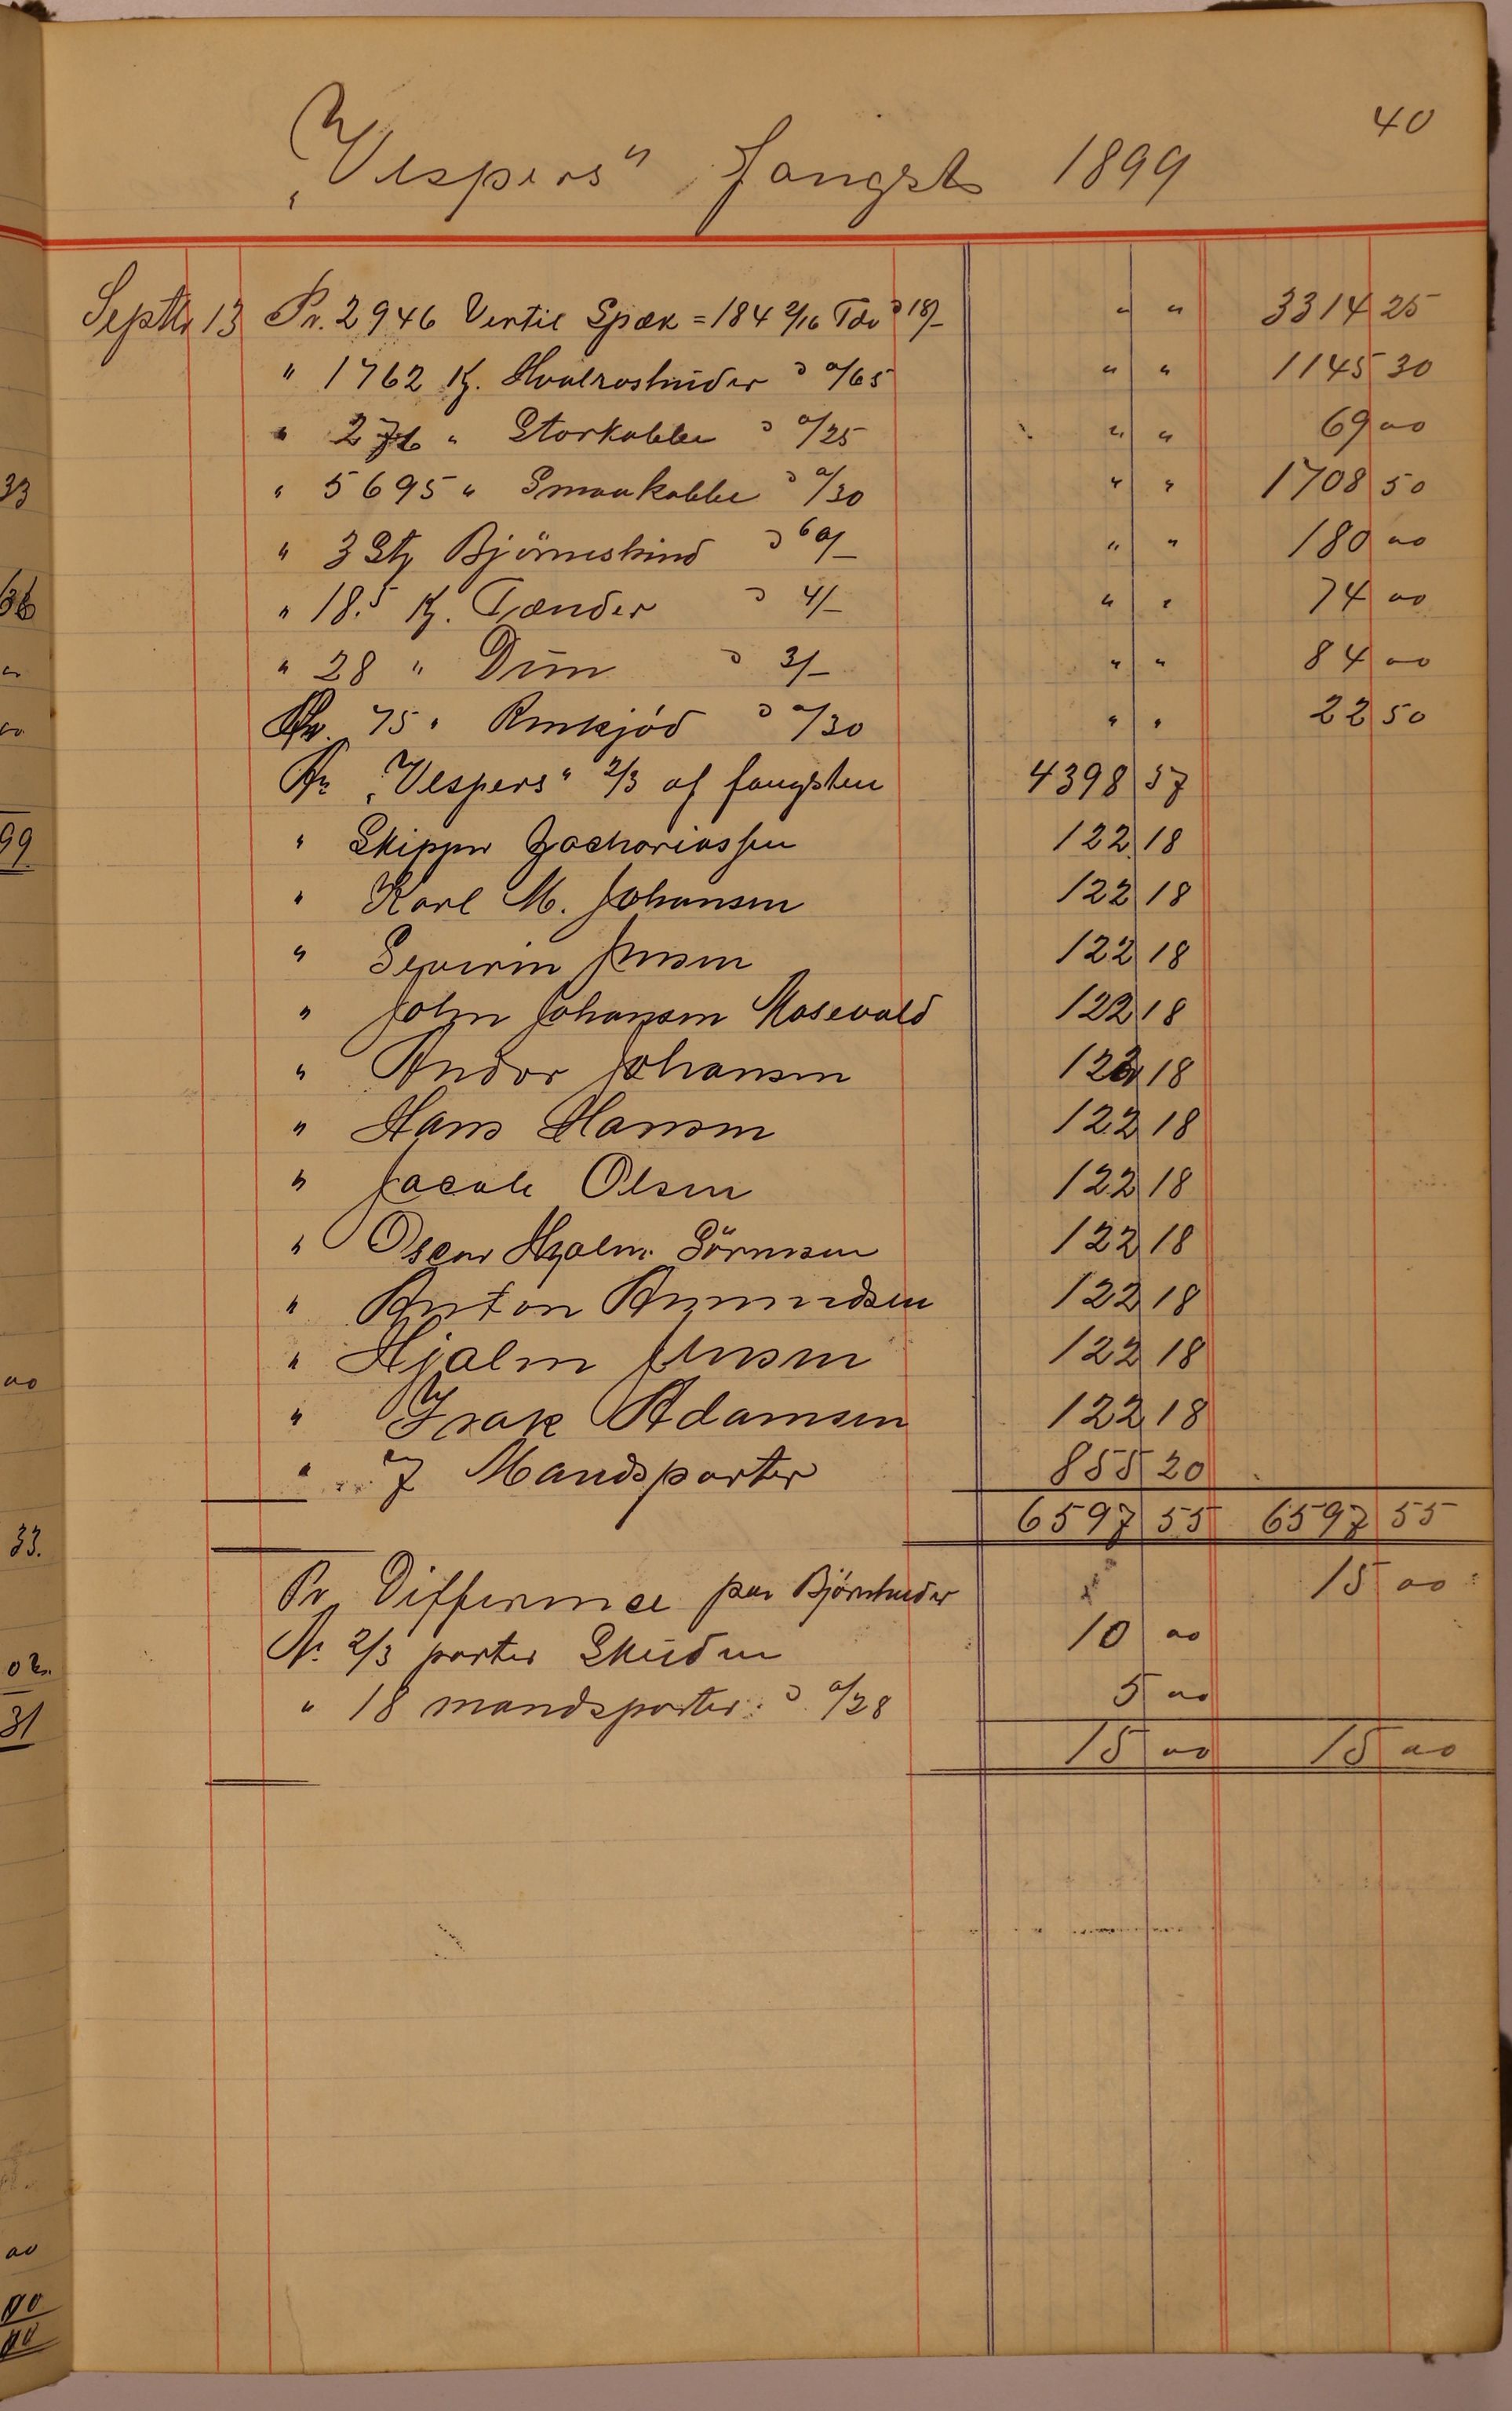 40
„Vespers" fangst 1899
Septbr 13 Pr. 2946 Vertil Spæk = 184 2/16 Tdr à 18/- " " 3314 25
" 1762 Kg. Hvalroshuder à 0/65 " " 1145 30
" 276 " Storkobbe à 0/25 " " 69 00
" 5695 " Smaakobbe à 0/30 " " 1708 50
" 3 Stk Björneskind à 60/- " " 180 00
" 18.5 Kg. Tænder à 4/- " " 74 00
" 28 " Dun à 3/- " " 84 00
Pr. 75 " Renkjöd à 0/30 " " 22 50
An „Vespers" 2/3 af fangsten 4398 37
" Skipper Zachariassen 122 18
" Karl M. Johansen 122 18
" Severin Jensen 122 18
" John Johansen Kasevald 122 18
" Andor Johansen 122 18
" Hans Hansen 122 18
" Jacob Olsen 122 18
" Oscar Hjalm. Sörensen 122 18
" Anton Amundsen 122 18
" Hjalm Jensen 122 18
" Isak Adamsen 122 18
" 7 Mandsparter 855 20
6597 55 6597 55
Pr Differense paa Björnhuder 15 00
An 2/3 parter Skuden 10 00
" 18 mandsparter à 0/28 5 00
15 00 15 00
33
36
00
00
99
00
33.
02.
31
00
00
00